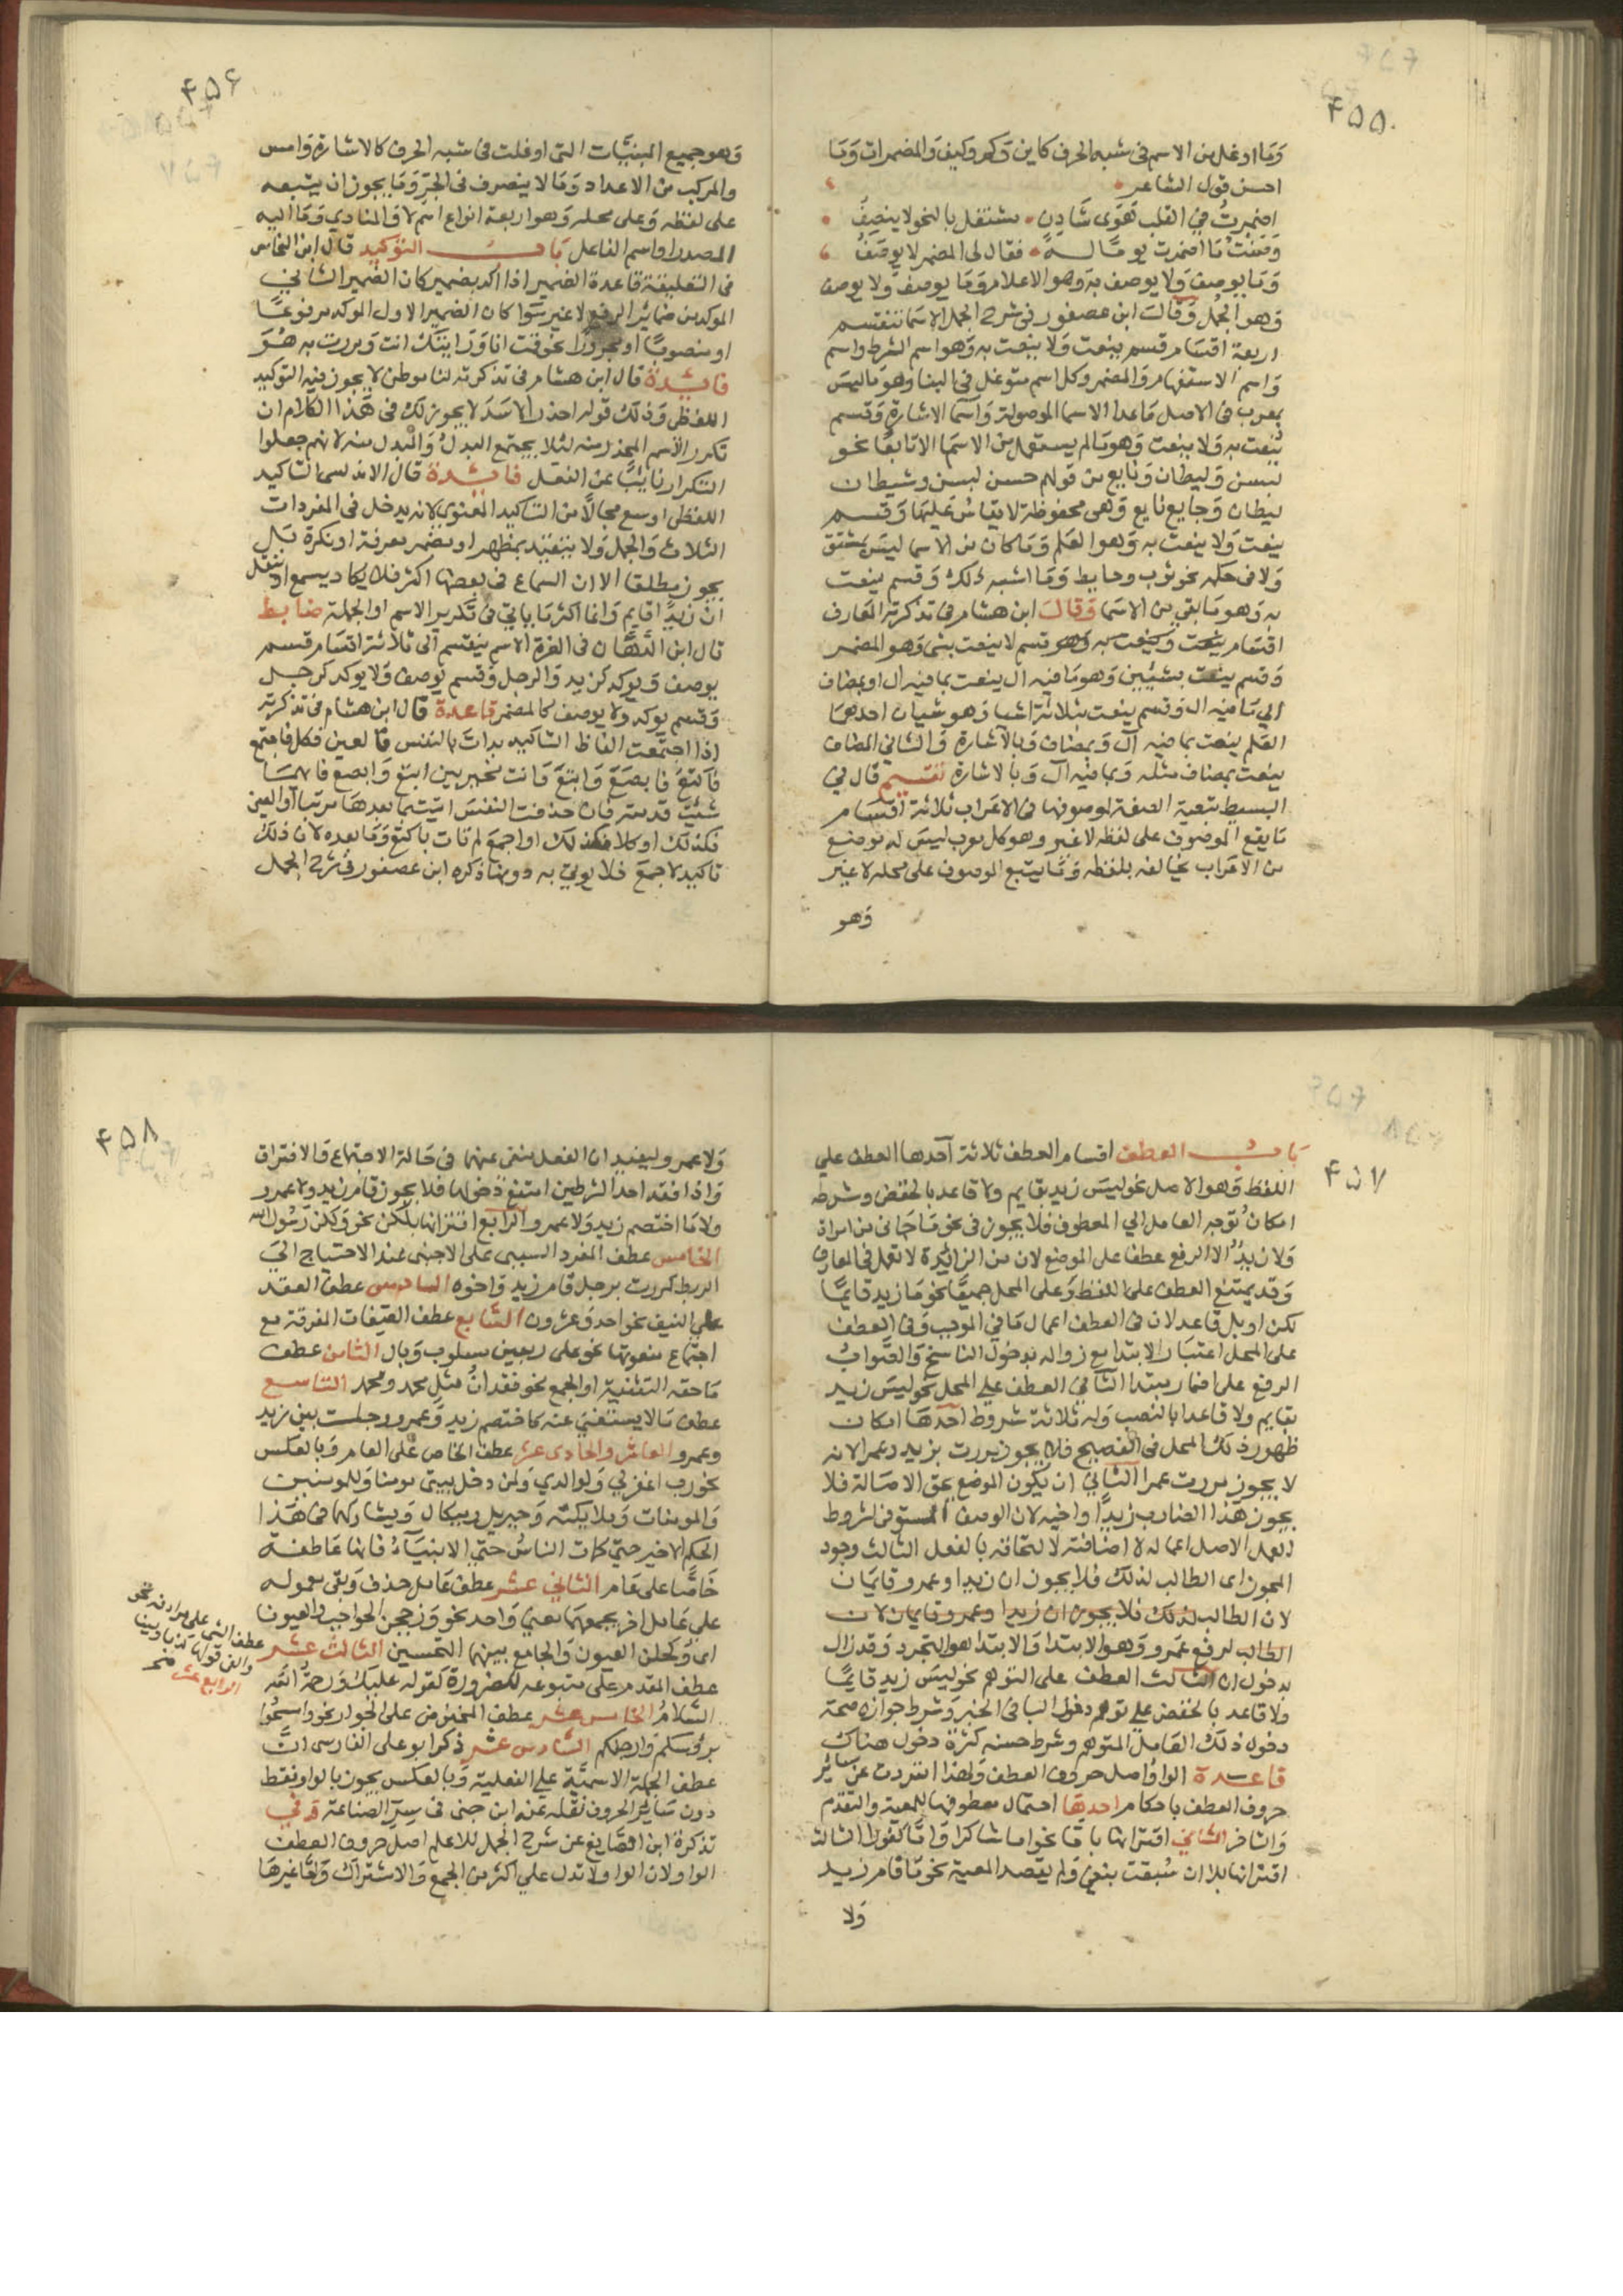 ۴۵۵
وما اوغل من الاسم فى شبه الحرف كاين وكم وكيف والمضمرات وما
احسن قول الشاعر
اضمرت في القلب هوى شادن مشتغل بالنحو لا ينصف
وصفت ما اضمرت يوما له فقال لى المضمر لا يوصف
وما يوصف ولا يوصف به وهو الاعلام وما يوصف ولا يوصف
وهو الجمل وقال ابن عصفور فى شرح الجمل الاسما تنقسم
اربعة اقسام قسم ينعت ولا ينعت به وهو اسم الشرط واسم
واسم الاستفهام والمضمر وكل اسم متوغل في البنا وهو ما ليس
بمعرب فى الاصل ما عدا الاسما الموصولة واسما الاشارة وقسم
ينعت به ولا ينعت وهو ما لم يستعمل من الاسما الا تابعا نحو
بسن وليطان ونايع من قولهم حسن بسن وشيطان
ليطان وجايع نايع وهى محفوظة لا يقاس عليها وقسم
ينعت ولا ينعت به وهو العلم وما كان من الاسما ليس بمشتق
ولا فى حكمه نحو ثوب وحايط وما اشبه ذلك وقسم ينعت
به وهو ما بقي من الاسما وقال ابن هشام فى تذكرته المعارف
اقسام ينعت وينعت به وهو قسم لا ينعت بشى وهو المضمر
وقسم ينعت بشيئين وهو ما فيه ال ينعت بما فيه ال او بمضاف
الي ما فيه ال وقسم ينعت بثلاثة اشيا وهو شيان احدهما
العلم ينعت بما فيه ال وبمضاف وبالاشارة والثاني المضاف
ينعت بمضاف مثله وبما فيه ال وبالاشارة تقسيم قال في
البسيط تبعية الصفة لموصوفها فى الاعراب ثلاثة اقسام
ما يتبع الموصوف على لفظه لا غير وهو كل معرب ليس له موضع
من الاعراب يخالف بلفظه وما يتبع الموصوف على محله لا غير
وهو
۴۵۶
وهو جميع المبنيات التى اوغلت فى شبه الحرف كالاشارة وامس
والمركب من الاعداد وما لا ينصرف فى الجر وما يجوز ان يتبعه
على لفظه وعلى محله وهو اربعة انواع اسم لا والمنادي وما اليه
المصدر او اسم الفاعل باب التوكيد قال ابن النحاس
فى التعليقة قاعدة الضمير اذا اكد بضمير كان الضمير الثاني
الموكد من ضمائر الرفع لا غير سوا كان الضمير الاول الموكد مرفوعا
او منصوبا او مجرورا نحو قمت انا ورايتك انت ومررت به هو
فائدة قال ابن هشام فى تذكرته لنا موطن لا يجوز فيه التوكيد
اللفظى وذلك قوله احذر الاسد لا يجوز لك فى هذا الكلام ان
تكرر الاسم المحذر منه لئلا يجتمع البدل والمبدل منه لانهم جعلوا
التكرار نايبا عن الفعل فائدة قال الاندلسى التاكيد
اللفظى اوسع مجالا من التاكيد المعنوى لانه يدخل فى المفردات
الثلاث والجمل ولا يتقيد بمظهر او مضمر معرفة او نكرة بل
يجوز مطلقا الا ان السماع فى بعضها اكثر فلا يكاد يسمع او ينقل
ان زيدا قايم وانما اكثر ما ياتي فى تكرير الاسم او الجملة ضابط
قال ابن الدهان فى الغرة الاسم ينقسم الى ثلاثة اقسام قسم
يوصف ويوكد كزيد والرجل وقسم يوصف ولا يوكد كرجل
وقسم يوكد ولا يوصف كالمضمر قاعدة قال ابن هشام فى تذكرته
اذا اجتمعت الفاظ التاكيد بدات بالنفس فالعين فكل فاجمع
فاكتع فابصع وابتع وانت مخير بين ابتع وابصع فايهما
شئت قدمته فان حذفت النفس اتيت بما بعدها مرتبا او العين
فكذلك او كلا فكذلك او اجمع لم تات باكتع وما بعده لان ذلك
تاكيد لاجمع فلا يوتي به دونها ذكره ابن عصفور فى شرح الجمل
۴۵۷
باب العطف اقسام العطف ثلاثة احدها العطف على
اللفظ وهو الاصل نحو ليس زيد بقايم ولا قاعد بالخفض وشرطه
امكان توجه العامل الي المعطوف فلا يجوز فى نحو ما جانى من امراة
ولا زيد الا الرفع عطفا على الموضع لان من الزائدة لا تعمل فى المعارف
وقد يمتنع العطف على اللفظ وعلى المحل جميعا نحو ما زيد قايما
لكن او بل قاعد لان فى العطف اعمال ما في الموجب وفى العطف
على المحل اعتبار الابتدا مع زواله بدخول الناسخ والصواب
الرفع على اضمار مبتدا الثاني العطف علي المحل نحو ليس زيد
بقايم ولا قاعدا بالنصب وله ثلاثة شروط احدها امكان
ظهور ذلك المحل فى الفصيح فلا يجوز مررت بزيد وعمرا لانه
لا يجوز مررت عمرا الثاني ان يكون الموضع بحق الاصالة فلا
يجوز هذا الضارب زيدا واخيه لان الوصف المستوفى لشروط
العمل الاصل اعماله لا اضافته لالتحاقه بالفعل الثالث وجود
المجوز اى الطالب لذلك فلا يجوز ان زيدا وعمرو قايمان
لان الطالب لذلك فلا يجوز ان زيدا وعمرو قايمان لان
الطالب لرفع عمرو وهو الابتدا والابتدا هو التجرد وقد زال
بدخول ان الثالث العطف على التوهم نحو ليس زيد قايما
ولا قاعد بالخفض علي توهم دخول البا فى الخبر وشرط جوازه صحة
دخول ذلك العامل المتوهم وشرط حسنه كثرة دخوله هناك
قاعدة الواو اصل حروف العطف ولهذا انفردت عن سائر
حروف العطف باحكام احدها احتمال معطوفها للمعية والتقدم
والتاخر الثاني اقترانها باما نحو اما شاكرا واما كفورا الثالث
اقترانها بلا ان سبقت بنفي ولم يقصد المعية نحو ما قام زيد
ولا
۴۵۸
ولا عمرو ليفيد ان الفعل منفى عنهما فى حالة الاجتماع والافتراق
واذا فقد احد الشرطين امتنع دخولها فلا يجوز قام زيد ولا عمرو
ولا ما اختصم زيد ولا عمرو الرابع اقترانها بلكن نحو ولكن رسول الله
الخامس عطف المفرد السببى على الاجنبى عند الاحتياج الي
الربط كمررت برجل قام زيد واخوه السادس عطف العقد
علي النيف نحو احد وعشرون السابع عطف الصفات المفرقة مع
اجتماع منعوتها نحو على ربعين مسلوب وبال الثامن عطف
ما حقه التثنية او الجمع نحو فقدان مثل محمد ومحمد التاسع
عطف ما لا يستغنى عنه كاختصم زيد وعمرو وجلست بين زيد
وعمرو العاشر والحادى عشر عطف الخاص على العام وبالعكس
نحو رب اغفر لي ولوالدي ولمن دخل بيتى مومنا وللمومنين
والمومنات وملايكته وجبريل وميكال ويشاركها فى هذا
الحكم الاخير حتى كمات الناس حتي الانبياء فانها عاطفة
خاصا على عام الثاني عشر عطف عامل حذف وبقى معموله
على عامل اخر يجمعهما معنى واحد نحو وزججن الحواجب والعيونا
اى وكحلن العيون والجامع بينهما التحسين الثالث عشر
عطف الشى على مرادفه نحو
والفى قولها كذبا ومينا
الرابع عشر
عطف المقدم على متبوعه للضرورة كقوله عليك ورحمة الله
السلام الخامس عشر عطف المخفوض على الجوار نحو وامسحوا
برؤسكم وارجلكم السادس عشر ذكر ابو على الفارسى ان
عطف الجملة الاسمية علي الفعلية وبالعكس يجوز بالواو فقط
دون سائر الحروف نقله عنه ابن جنى فى سر الصناعة وفي
تذكرة ابن الصايغ عن شرح الجمل للاعلم اصل حروف العطف
الواو لان الواو لا تدل علي اكثر من الجمع والاشتراك واما غيرها